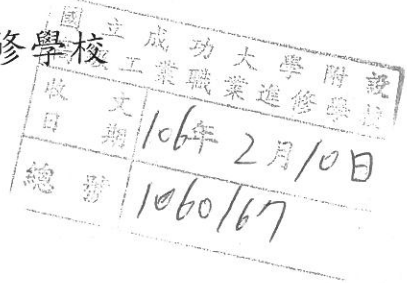 修學校
國立成功大學附設
高級工業職業進修學校
收文日期 106年2月10日
總號 1060167